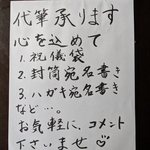 代筆承ります
心を込めて
1.祝儀袋
2.封筒宛名書き
3.ハガキ宛名書き
など…。
お気軽に、コメント
下さいませ♡